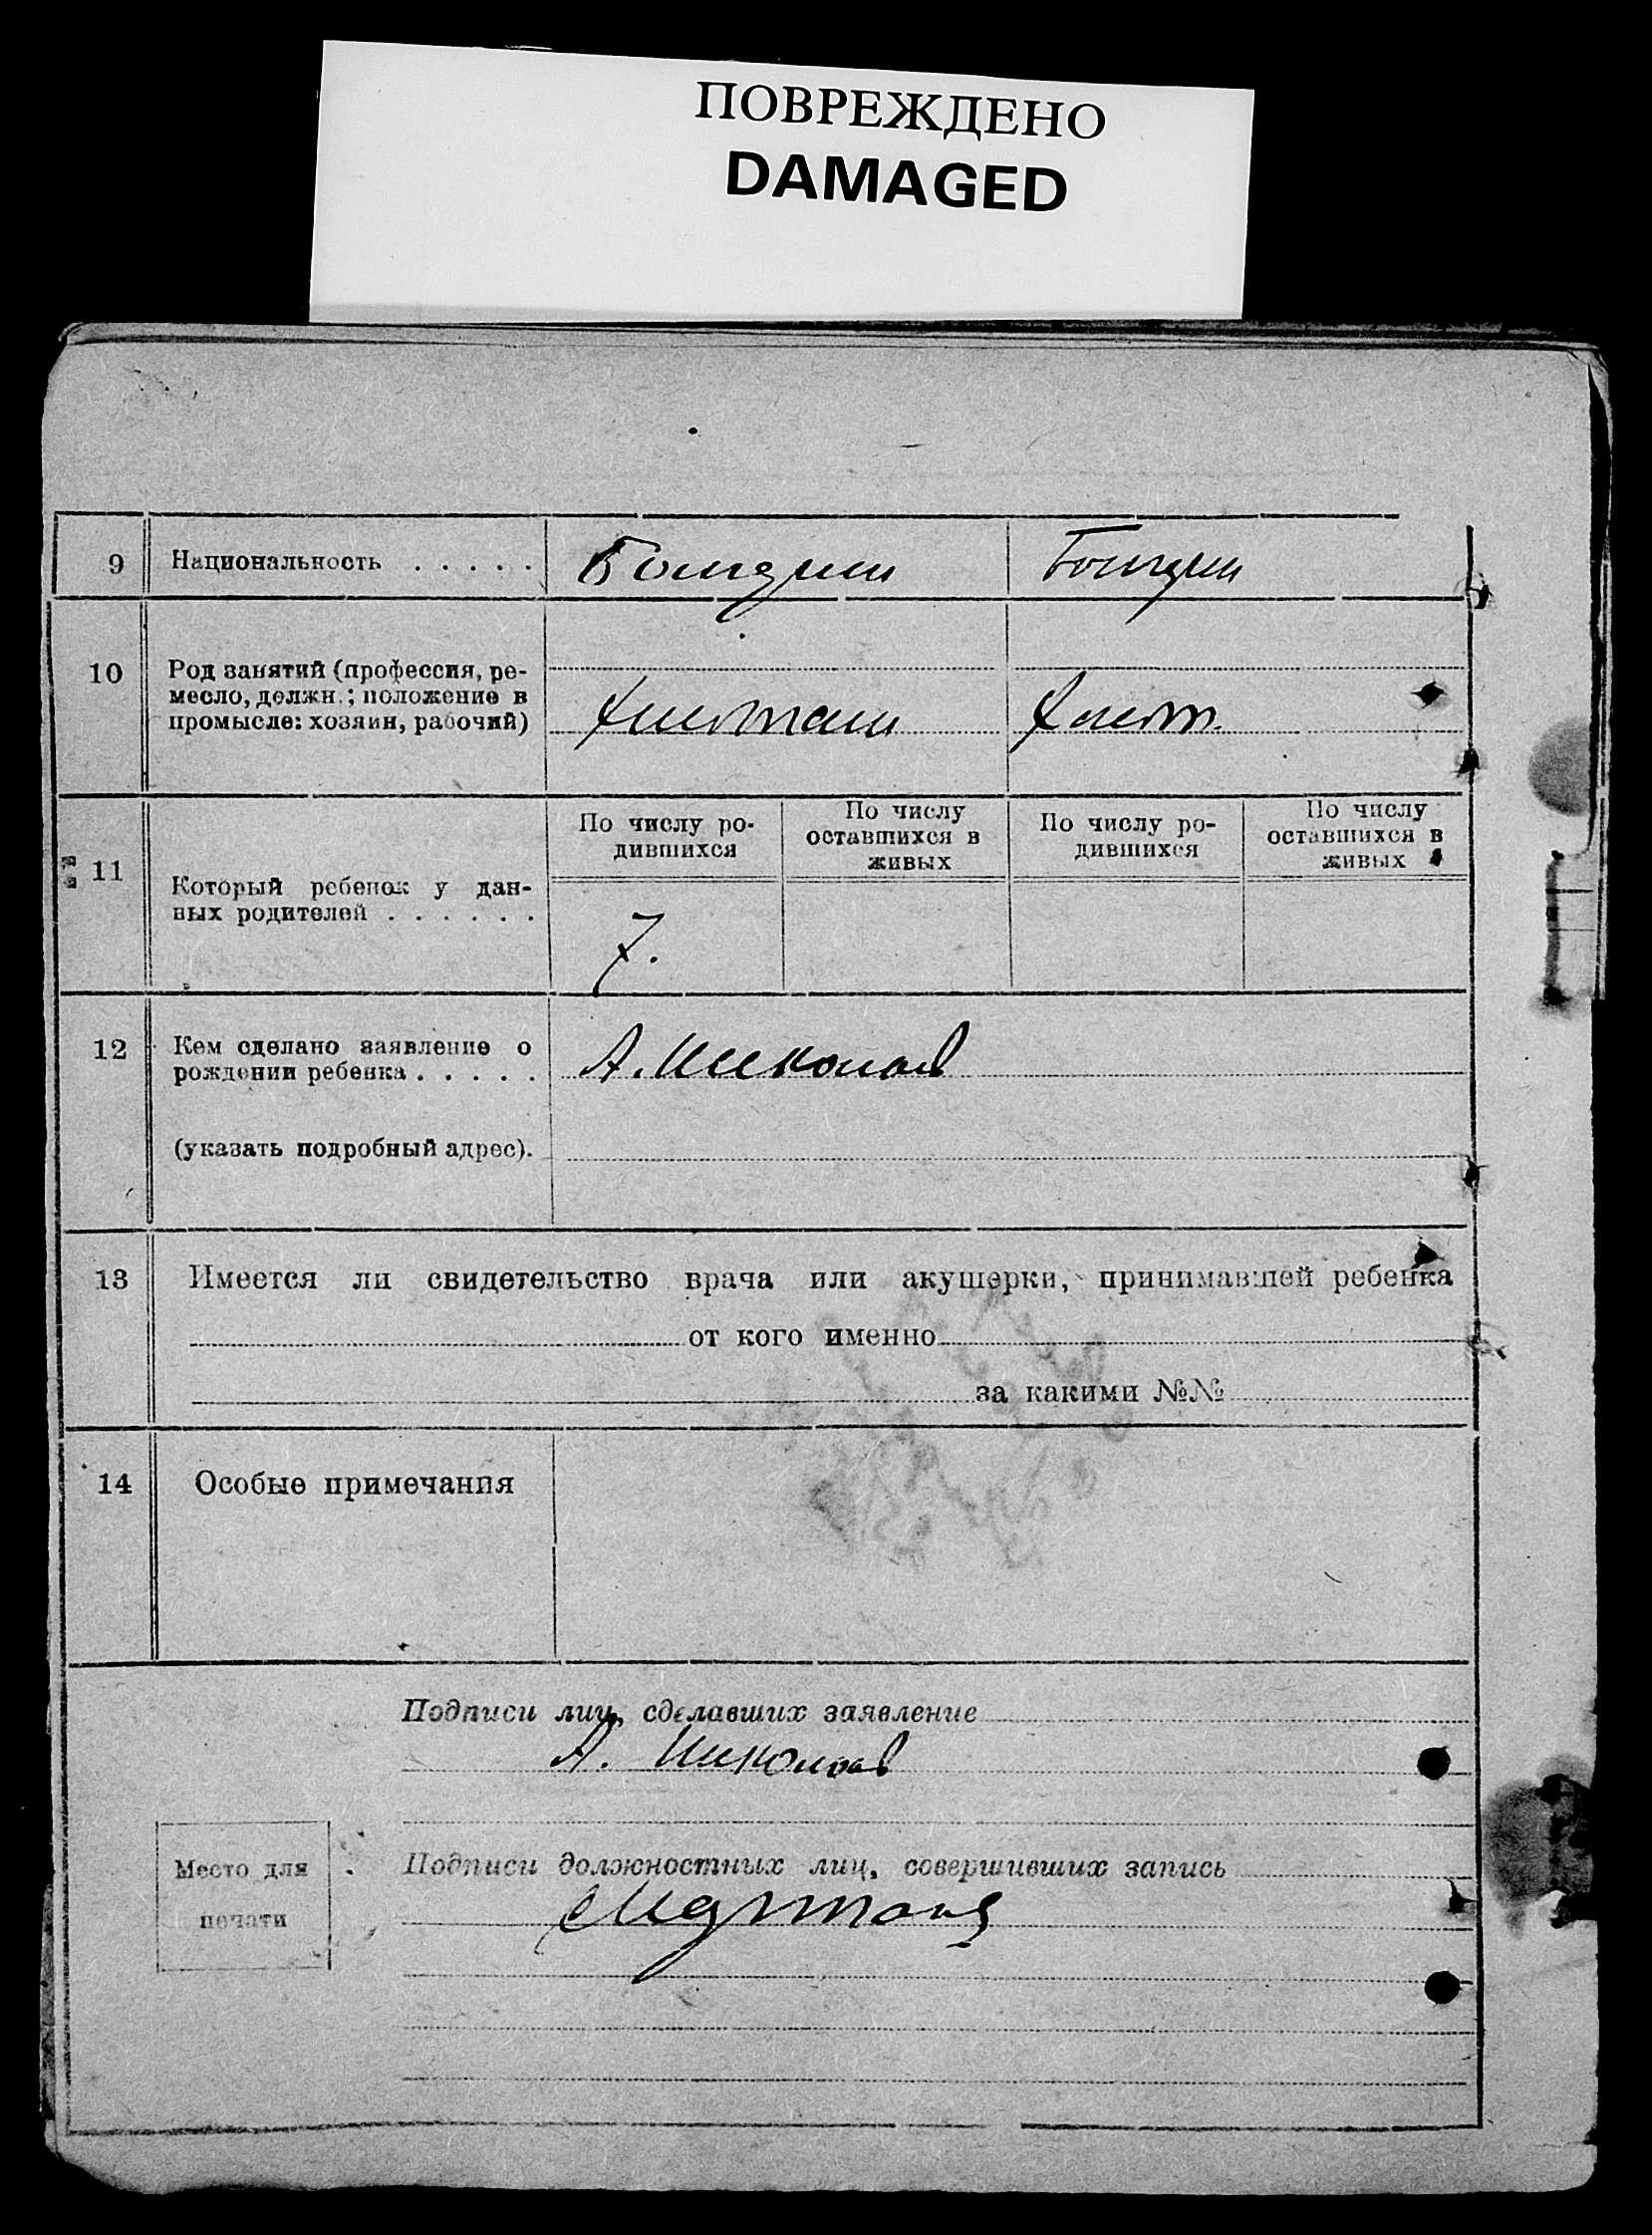 ПОВРЕЖДЕНО
DAMAGED
9 Национальность . . . . .
10 Род занятий (профессия, ре-
месло, должн.; положение в
промысле: хозяин, рабочий)
По числу ро-
дившихся
По числу
оставшихся в
живых
По числу ро-
дившихся
По числу
оставшихся в
живых
11 Который ребенок у дан-
ных родителей . . . . . .
7.
12 Кем сделано заявление о
рождении ребенка . . . . . А.
(указать подробный адрес).
13 Имеется ли свидетельство врача или акушерки, принимавшей ребенка
от кого именно
за какими №№
14 Особые примечания
Подписи лиц, сделавших заявление
А.
Место для
печати
Подписи должностных лиц, совершивших запись